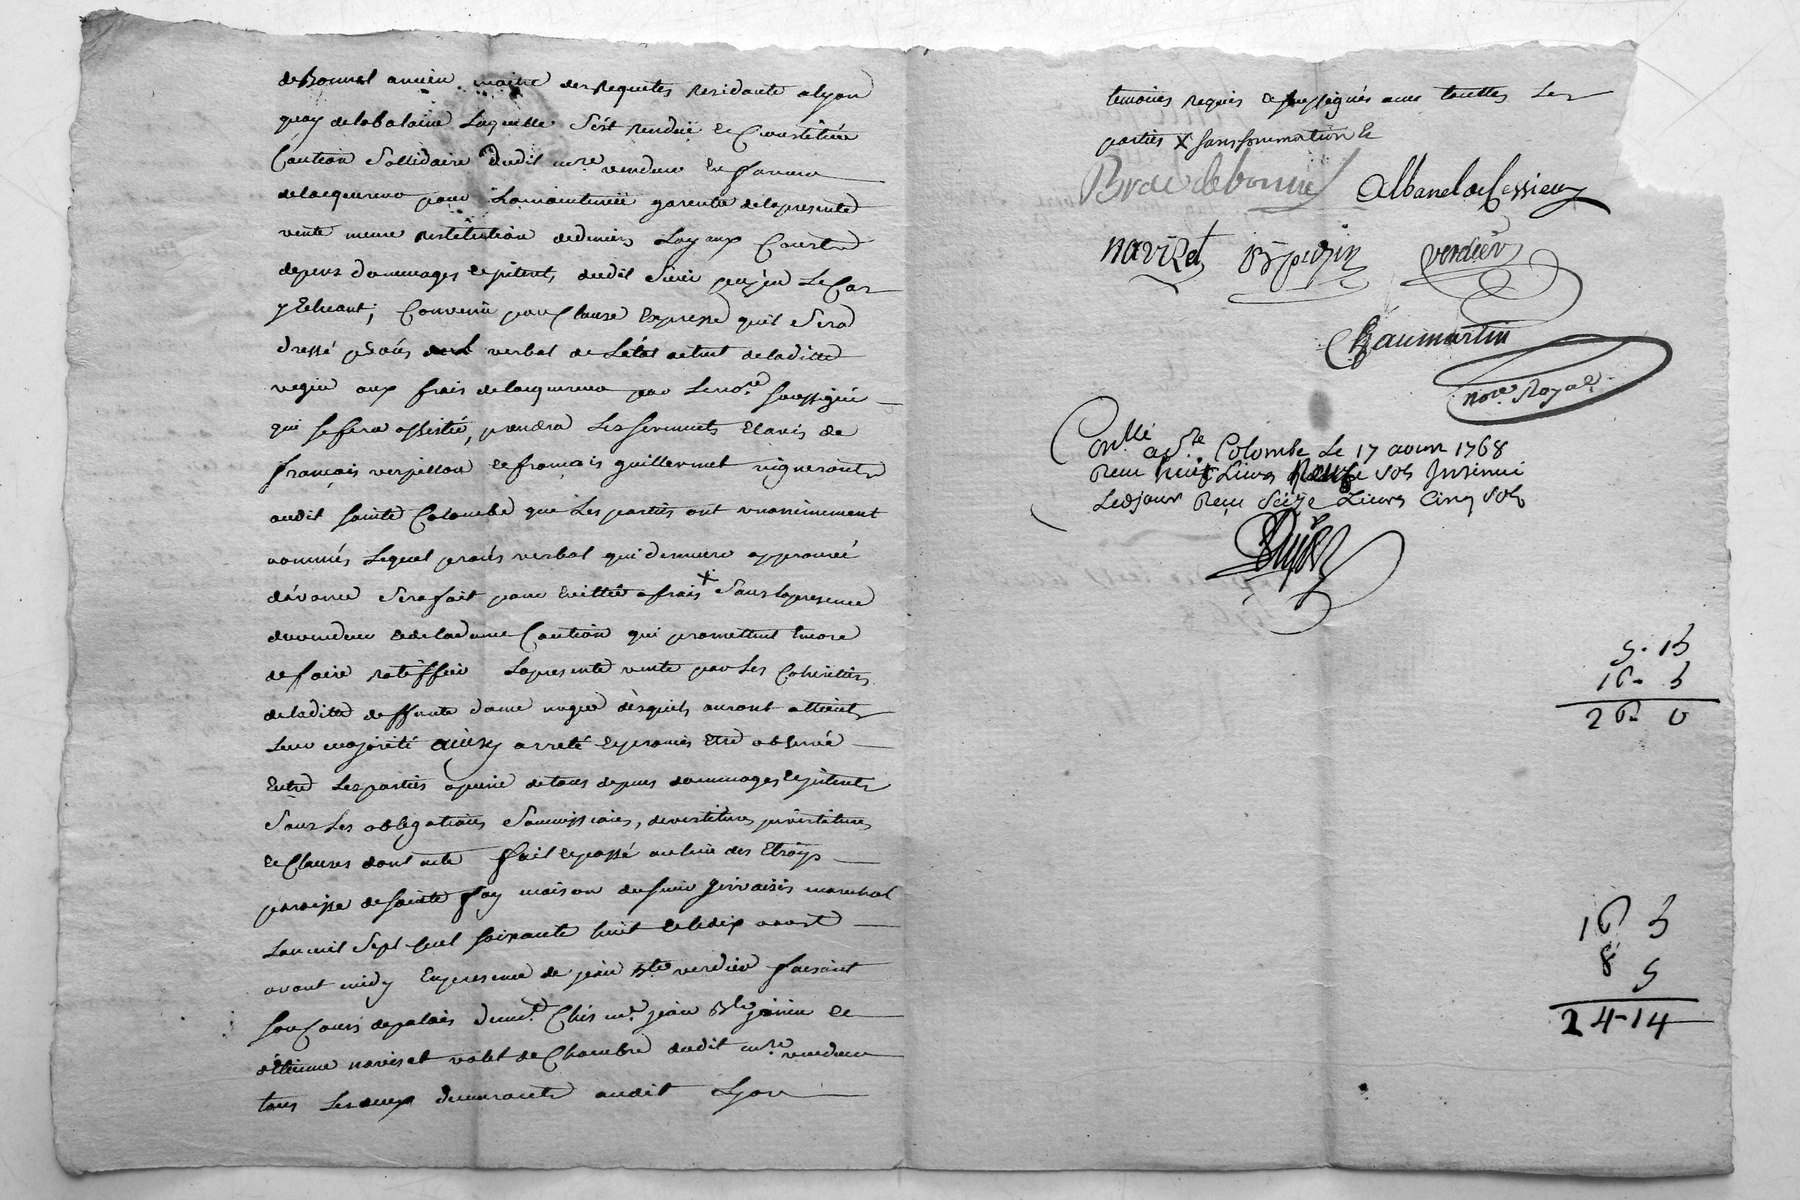 de Bonnel ancien maitre des Requetes Residante a lyon
quay de la baleine Laquelle S'est rendüe et Constituée
Caution Sollidaire dudit mre vendeur En faveur
de lacquereur pour La maintenüe garentie de la presente
vente meme restitution de deniers Loyaux Coustz
depens dommages et jnterets dudit Sieur le Cas
y Echeant; Convenu par Clause Expresse qu'il Sera
dressé procés verbal de L'état actuel de laditte
vigne aux frais de lacquereur par Le nore soussigné
qui se fera assister, prendra Les serments et avis de
françois verpillon et françois guillermet vignerons
audit sainte Colombe que Les parties ont unanimement
nommés Lequel procés verbal qui demeure approuvé
d'avance Sera fait pour Eviter a frais x Sans la presence
du vendeur et de la dame Caution qui promettent Encore
de faire ratiffier La presente vente par Les Coheritiers
de laditte deffunte dame desquels auront atteint
Leur majorité ainsy arreté et promis Etre observé
Entre Les parties a peine de tous depens dommages et jnterets
Sous Les obligations Soumissions, devestitures jnvestitures
et Clauses dont acte fait et passé au lieu des Etroys
paroisse de sainte foy maison du sieur gervaisis marechal
L'an mil Sept cent soixante huit et le dix aoust
avant midy En presence de jean bte verdier faisant
son Cours de palais mr jean Bte et
étienne naviset valet de Chambre dudit mre vendeur
tous Les deux demeurants audit Lyon
temoins requis et soussignés avec touttes Les
parties x sans sommation &
Brac de bonnel albanel de Cessieux
navizet verdier
Chaumartin
nore Royal
Conllé a Ste Colombe Le 17 aoust 1768
Reçu huit Livres neuf Sols Insinué
Led jour Reçu Seize Livres Cinq Sols
9. 15
16. 5
26. 0
16 5
8 9
24-14